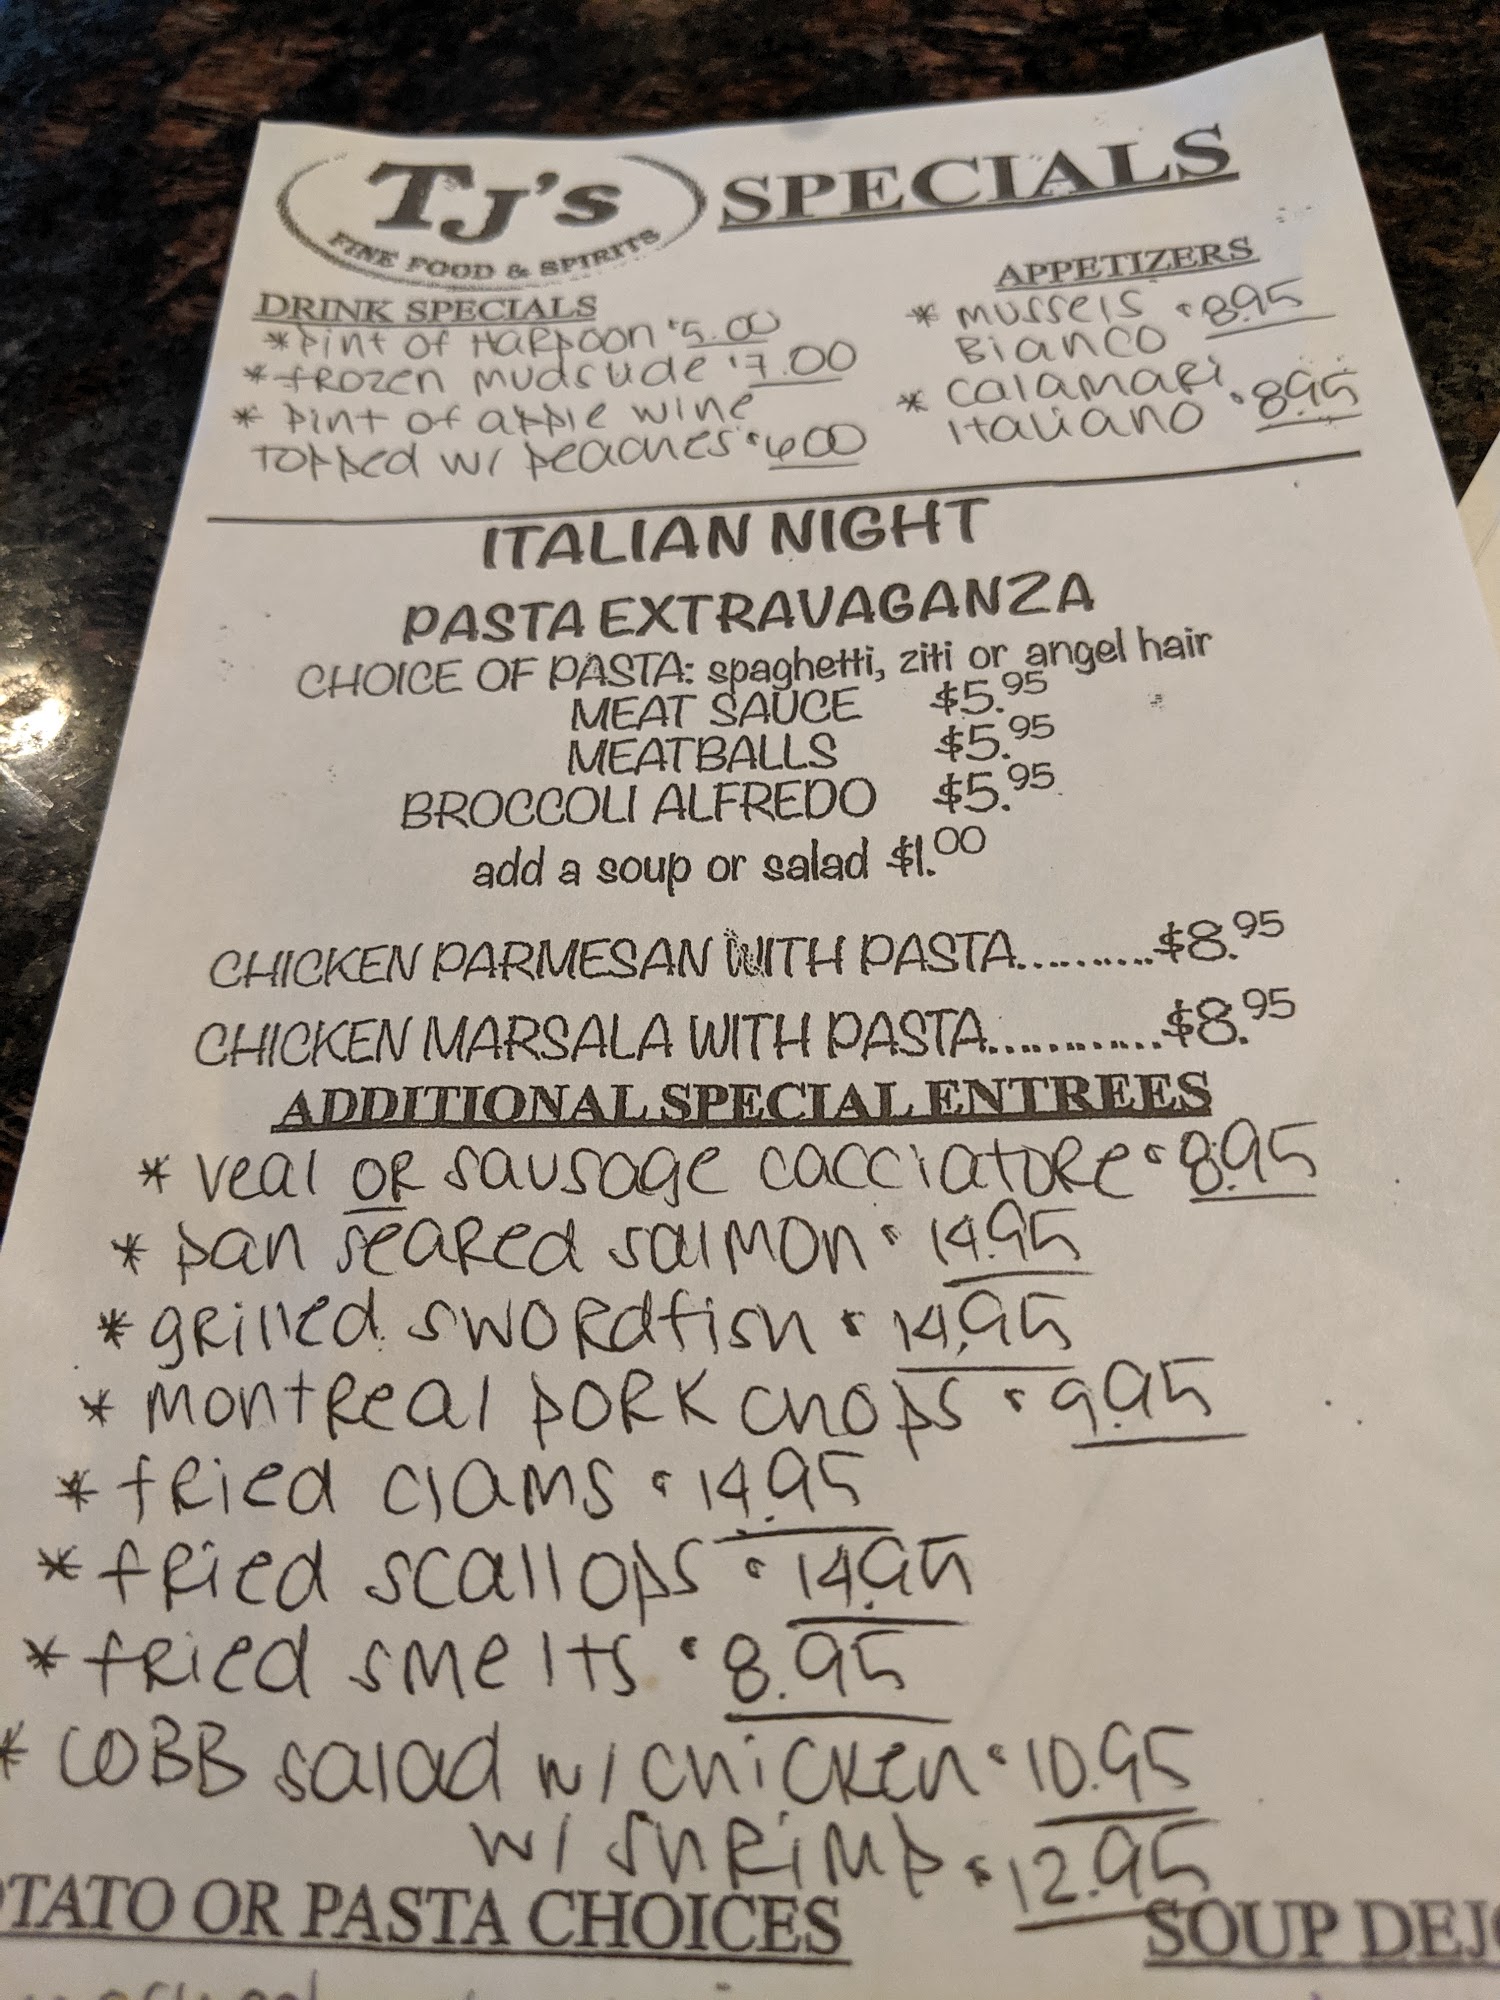 TJ's SPECIALS
FINE FOOD & SPIRITS
DRINK SPECIALS
* Pint of Harpoon $5.00
* frozen mudslide $7.00
* pint of apple wine
topped w/ peaches $6.00
APPETIZERS
* mussels $8.95
Bianco
* calamari
italiano $8.95
ITALIAN NIGHT
PASTA EXTRAVAGANZA
CHOICE OF PASTA: spaghetti, ziti or angel hair
MEAT SAUCE $5.95
MEATBALLS $5.95
BROCCOLI ALFREDO $5.95
add a soup or salad $1.00
CHICKEN PARMESAN WITH PASTA..........$8.95
CHICKEN MARSALA WITH PASTA............$8.95
ADDITIONAL SPECIAL ENTREES
* veal OR sausage cacciatore $8.95
* pan seared salmon $14.95
* grilled swordfish $14.95
* montreal pork chops $9.95
* fried clams $14.95
* fried scallops $14.95
* fried smelts $8.95
* COBB salad w/ chicken $10.95
w/ shrimp $12.95
OTATO OR PASTA CHOICES
SOUP DEJO